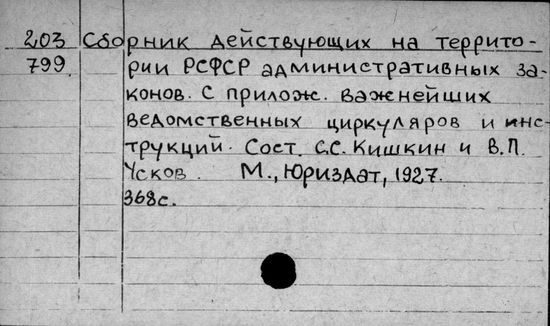 203 Сборник действующих на террито-
799. рии РСФСР административных за-
конов. С прилож. важнейших
ведомственных циркуляров и инс-
трукций. Сост. С.С. Кишкин и В.П.
Усков. М., Юриздат, 1927.
368с.